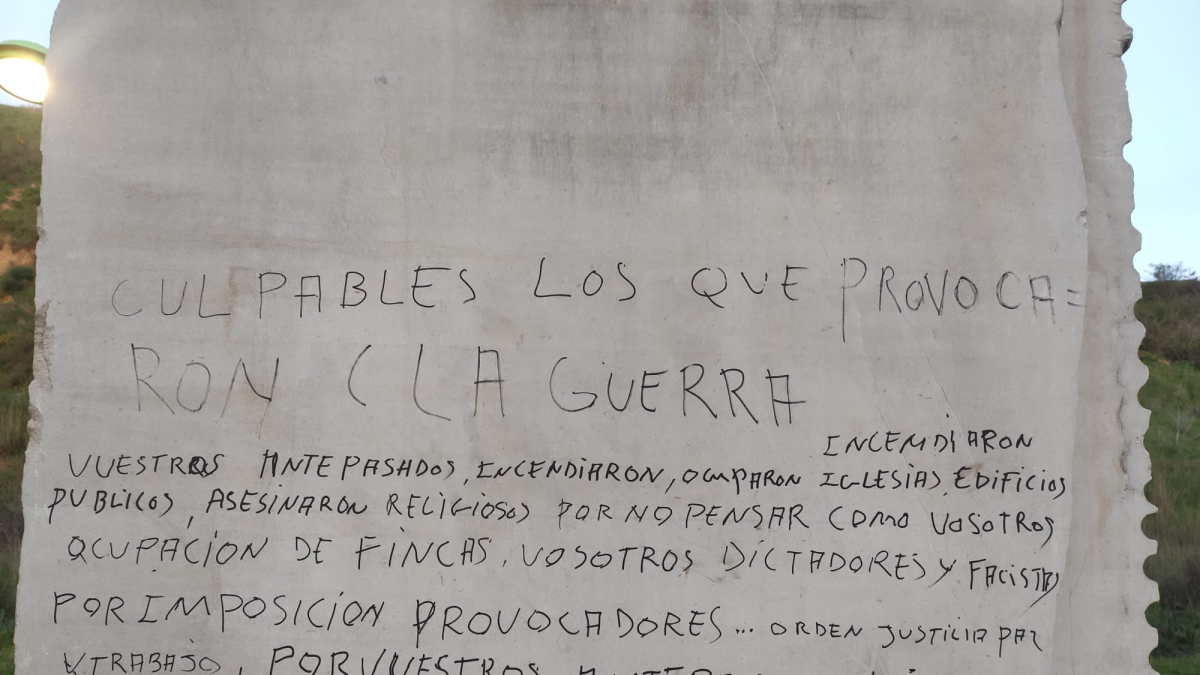 CULPABLES LOS QUE PROVOCA=
RON C LA GUERRA
INCENDIARON
VUESTROS ANTEPASADOS, INCENDIARON, OCUPARON IGLESIAS, EDIFICIOS
PUBLICOS, ASESINARON RELIGIOSOS POR NO PENSAR COMO VOSOTROS
OCUPACION DE FINCAS, VOSOTROS DICTADORES Y FACISTAS
POR IMPOSICION PROVOCADORES... ORDEN JUSTICIA PAZ
Y TRABAJO, POR VUESTROS